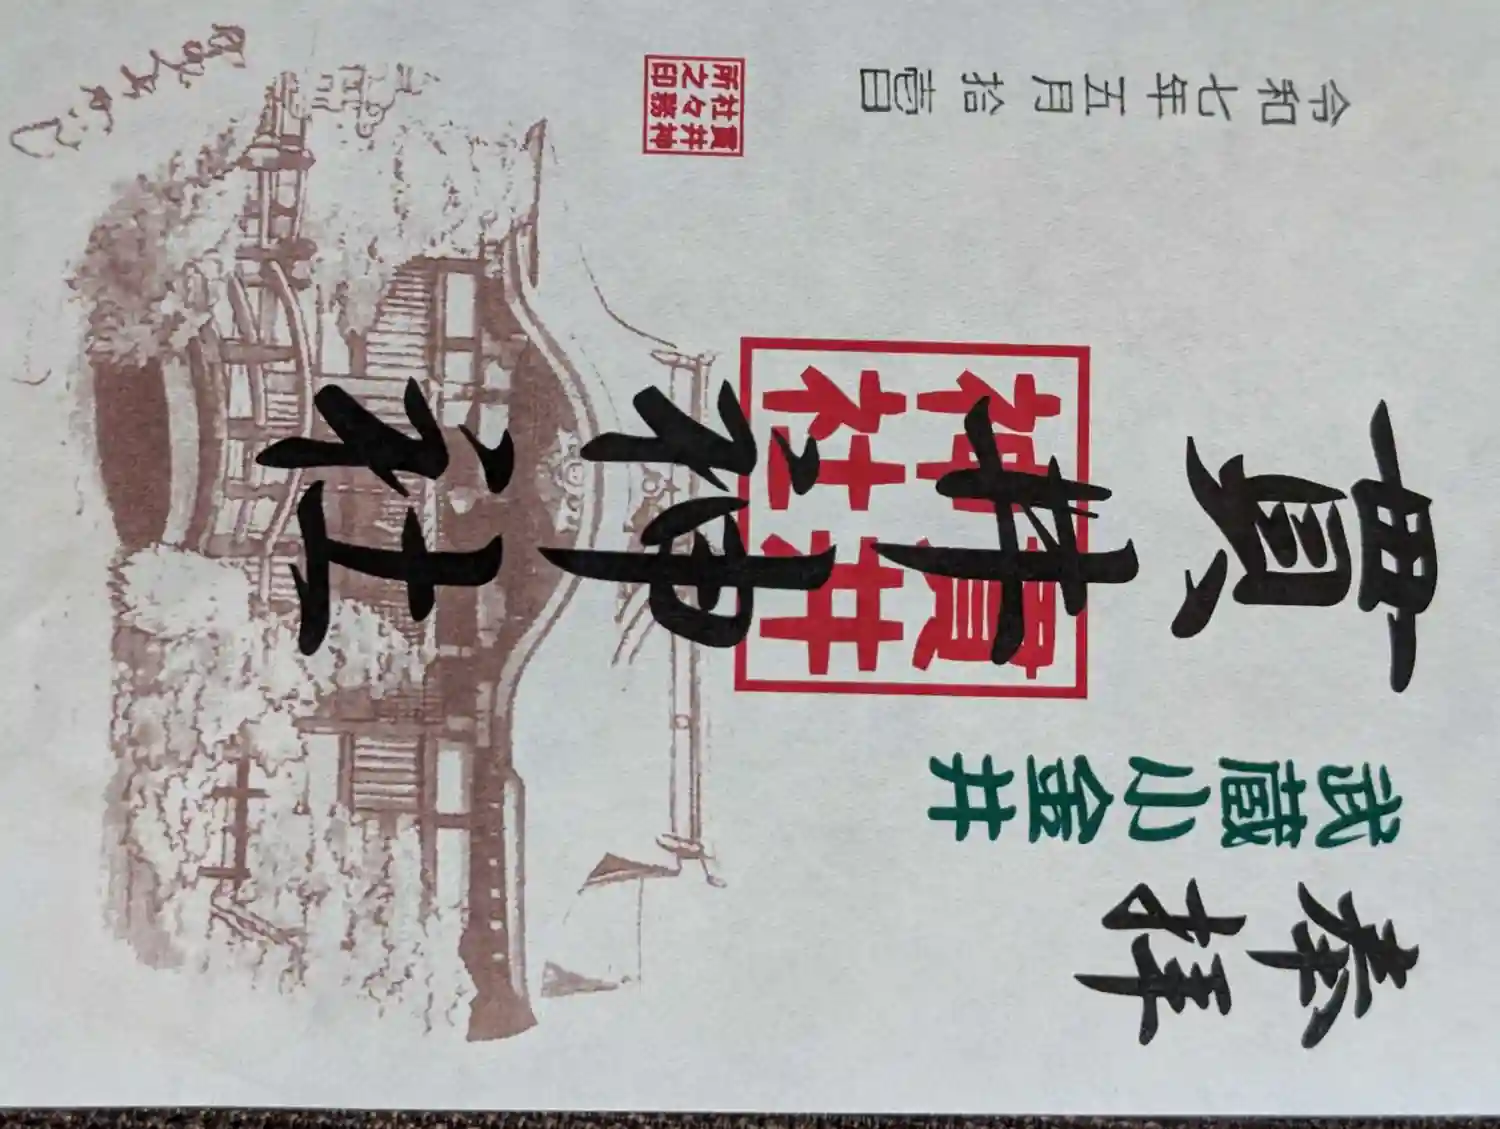 奉拝
武蔵小金井
貫井神社
貫井
神社
令和七年五月拾壱日
貫井神
社々務
所之印